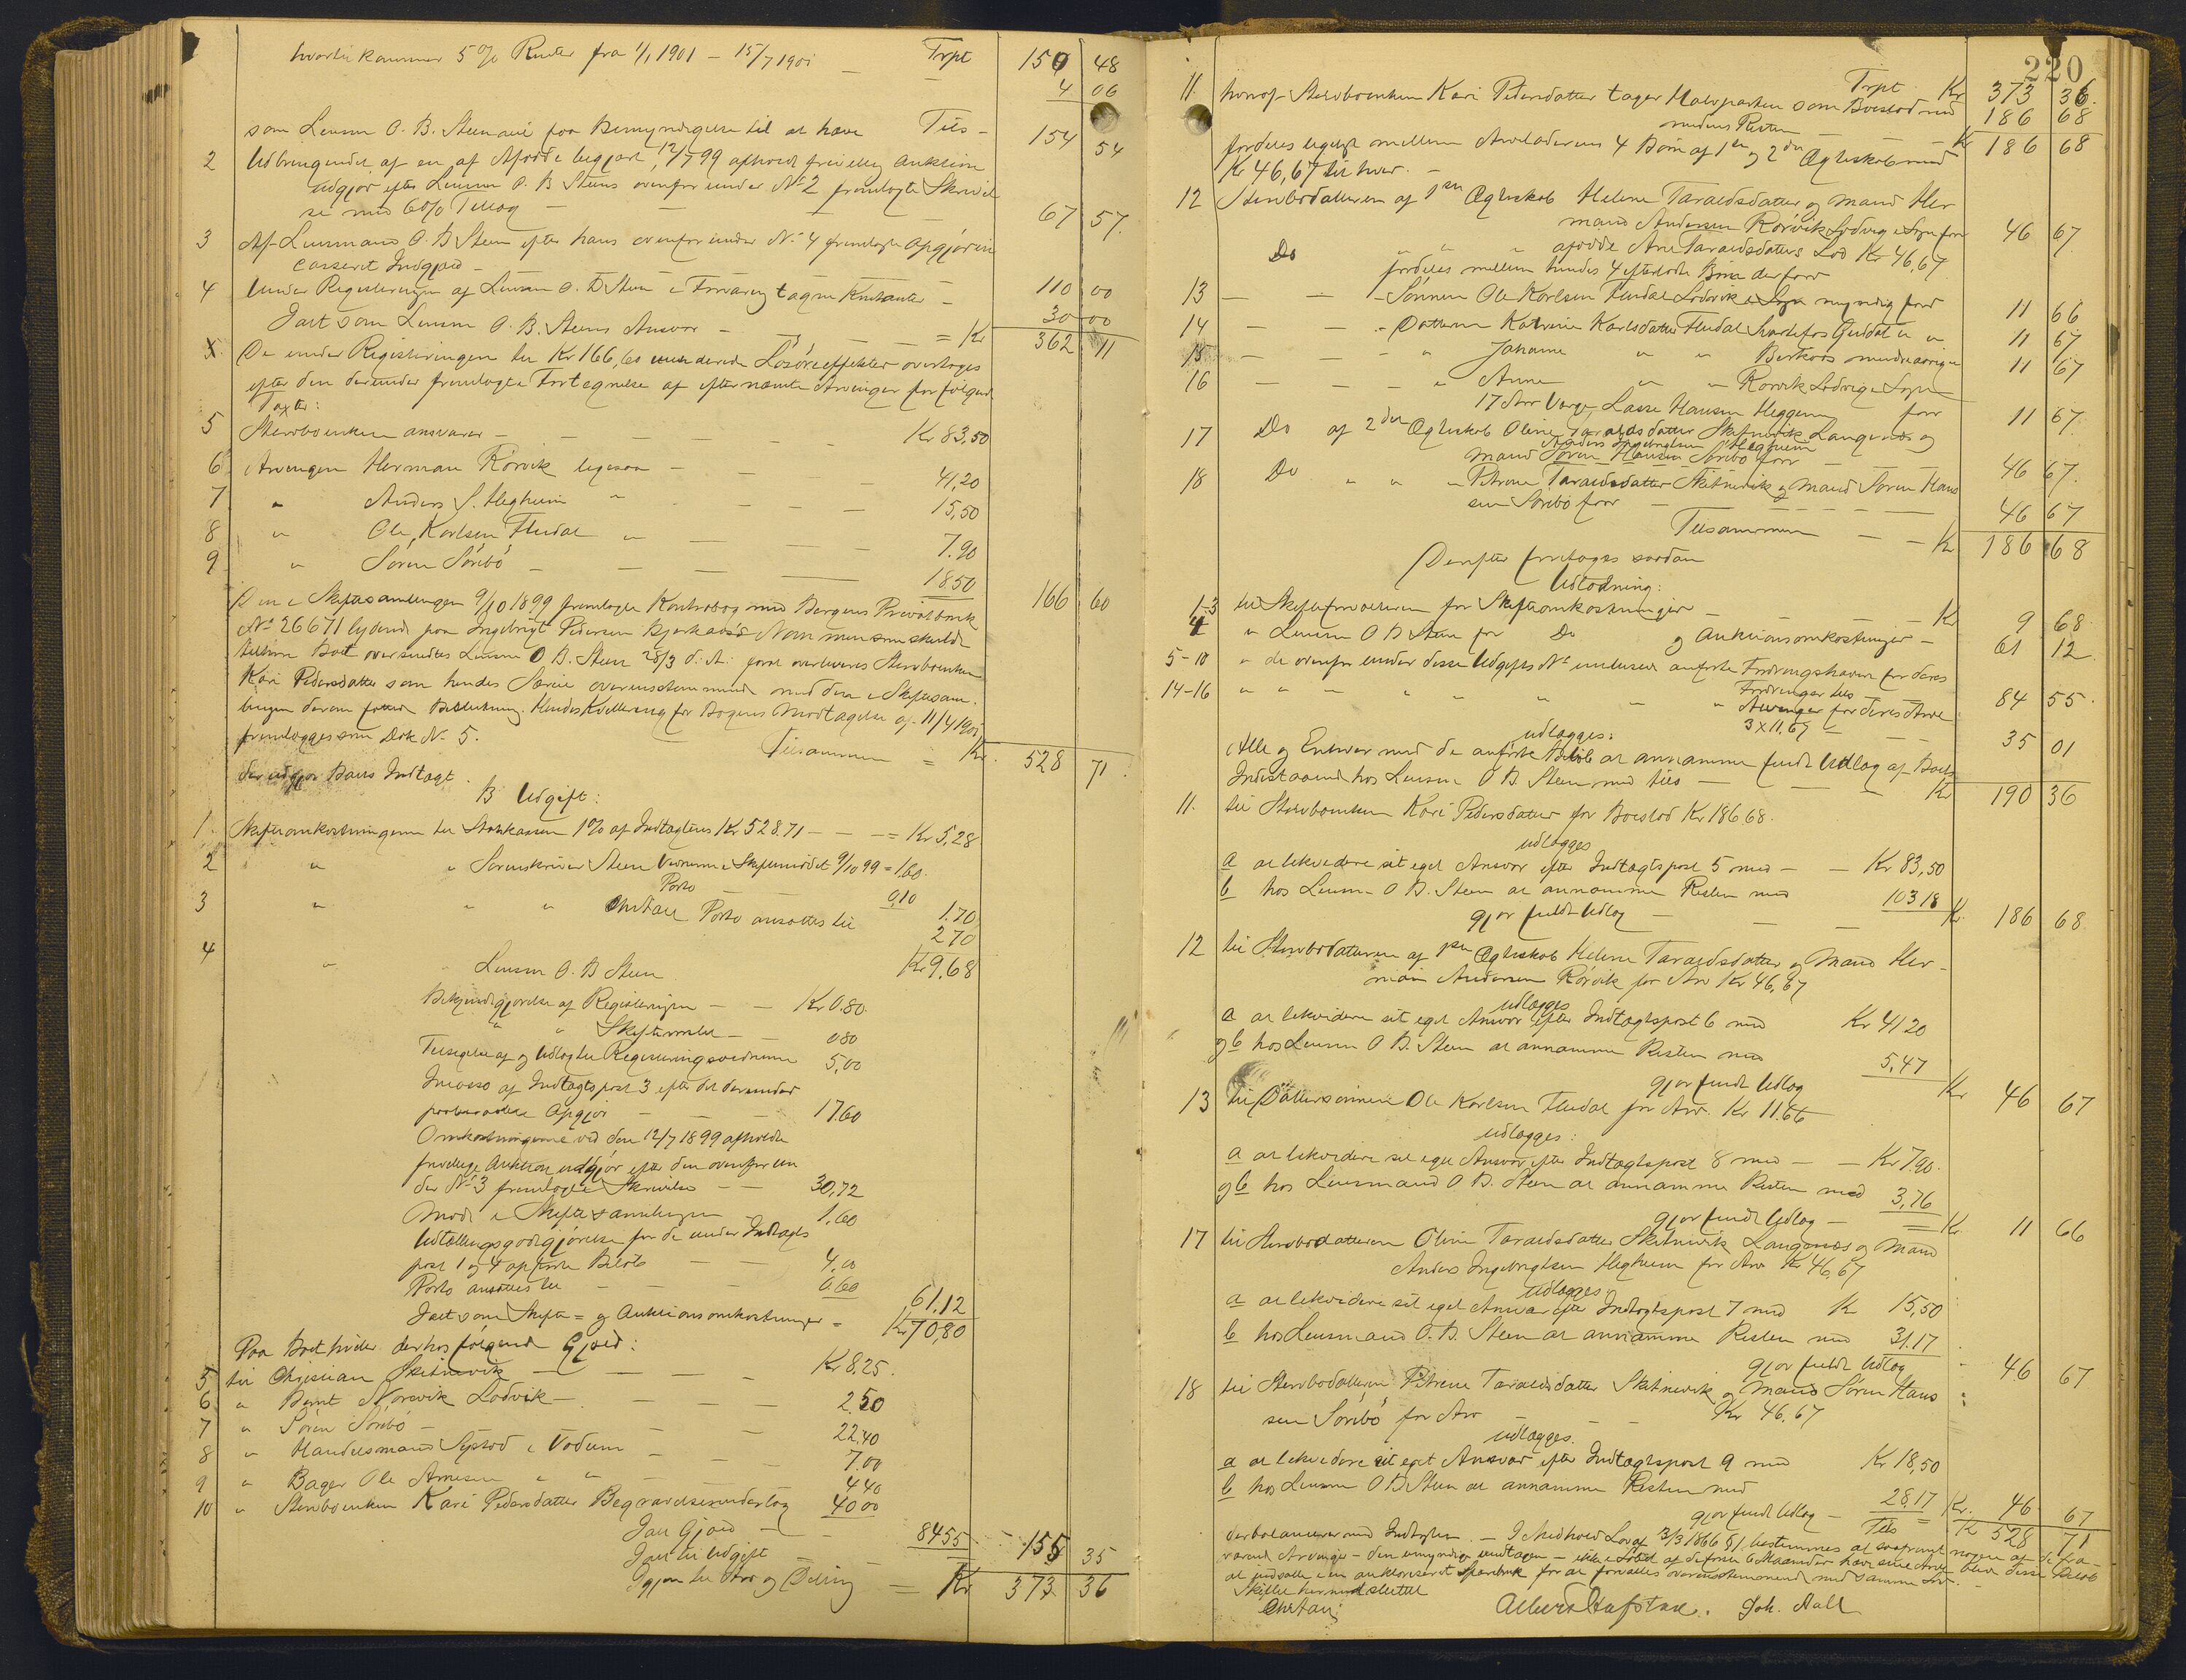 hvortil kommer 5 % Renter fra 1/1 1901 – 15/7 1901 – Trpt 150 48
4 06
som Lensm O. B. Steen vil faa Bemyndigelse til at hæve Tils – 154 54
2 Udbringendet af en af Afdøde begjært, 12/7 99 afholdt frivillig Auktion
udgjør efter Lensm O. B Steens ovenfor under No 2 fremlagte Skrivel
se med 6% Tillæg – 67 57.
3 Af Lensmand O. B Steen efter hans ovenfor under No 4 fremlagte Opgjør in
casseret Indgjæld – 110 00
4 Under Registreringen af Lensm O. B Steen i Forvaring tagne Kontanter – 30 00
Ialt som Lensm O. B. Steens Ansvar – = Kr 362 11
De under Registreringen til Kr 166,60 vurderede Løsøreeffekter overtages
efter den derunder fremlagte Fortegnelse af efternævnte Arvinger for følgende
Taxter:
5 Stervboenken ansvarer – Kr 83,50
6 Arvingen Herman Rørvik ligesaa – 41,20
7 " Anders J. Hegheim " 15,50
8 " Ole Karlsen Fludal " 7.90
9 " Søren Søribø – 18.50 166 60
Den i Skiftesamlingen 9/10 1899 fremlagte Kontrabog med Bergens Privatbank
No 26671 lydende paa Ingebrigt Pedersen Bjerkaas's Navn men som skulde
tilhøre Boet oversendtes Lensm O. B. Steen 28/3 d. A. for at overleveres Stervboenken
Kari Pedersdatter som hendes Særeie overensstemmende med den i Skiftesam-
lingen derom fattede Beslutning. Hendes Kvittering for Bogens Modtagelse af 11/4 1901
fremlægges som Dok No 5.
Tilsammen = Kr. 528 71.
der udgjør Boets Indtægt.
B Udgift:
1. Skifteomkostningerne til Statskassen 1% af Indtægtens Kr 528.71 – – = Kr 5,28
2 " " Sorenskriver Steen Vidnerne i Skiftemødet 9/10 99 = 1.60.
Porto 0,10 1.70
3 " " " Porto ansættes til 2 70
Kr 9,68
4 " Lensm O. B Steen
Bekjendtgjørelse af Registreringen – – Kr 0.80.
" " Skiftemødet – 0 80
Tilsigelse af og Udlæg til Registreringsvidnerne 5,00
Incasso af Indtægtspost 3 efter det derunder
paaberaabte Opgjør – – – 17.60
Omkostningerne ved den 12/7 1899 afholdte
frivillige Auktion udgjør efter den ovenfor un
der No 3 fremlagte Skrivelse – – 30,72
Møde i Skiftesamlingen – 1,60
Udtællingsgodtgjørelse for de under Indtægts
post 1 og 4 opførte Beløb – – 4,00
Porto ansættes til – 0.60 61,12
Ialt som Skifte= og Auktionsomkostninger = Kr 70,80
Paa Boet hviler derhos følgende Gjæld:
5 til Christian Skitnevik – – – Kr 8,25.
6 " Bernt Rørvik Lødvik – – – 2.50
7 " Søren Søribø – – – 22,40
8 " Handelsmand i Vadum – – 7.00
9 " Bager Ole Arnesen " " – 4 40
10 " Stervboenken Kari Pedersdatter Begravelsesudlæg 40 00
Ialt Gjæld – 84 55
Ialt til Udgift – 155 35
Igjen til Arv og Deling = Kr 373 36
220
Trpt Kr 373 36.
11. hvoraf Stervboenken Kari Pedersdatter tager Halvparten som Boeslod med 186 68
medens Resten – – Kr 186 68
fordeles ligeligt mellem Arveladerens 4 Børn af 1ste og 2det Ægteskab med
Kr 46,67 til hver. –
12 Stervbodatteren af 1ste Ægteskab Helene Taraldsdatter og Mand Her
mand Andersen Rørvik Lødvig Sogn for 46 67.
Do " " " afdøde Ane Taraldsdatters Lod Kr 46,67
fordeles mellem hendes 4 efterladte Børn der faar
13 – – – Sønnen Ole Karlsen Fludal Lødvik Sogn myndig faar 11 66
14 – – – Datteren Katrine Karlsdatter Fludal Guldal " " 11 67
15 – – – " Johanne " " mindreaarige 11 67
16 – – – " Anne " " Rørvik Lødvig Sogn
17 Aar Verge, Lasse Hansen Heggem faar 11 67.
17 Do af 2det Ægteskab Oline Taraldsdatter Skitnevik Langenæs og
Anders Ingebrigtsen Hegheim
Mand Søren Hansen Søribø faar – 46 67.
18 Do " " " Petrine Taraldsdatter Skitnevik og Mand Søren Han
sen Søribø faar – 46 67
Tilsammen – – Kr 186 68
Derefter foretages saadan
Udlodning:
1-3 til Skifteforvalteren for Skifteomkostninger – Kr 9 68.
4 " Lensm O B Steen for Do og Auktionsomkostninger – 61 12
5-10 " de ovenfor under disse Udgifts No anførte Fordringshavere for deres
Fordringer tils – 84 55.
14-16 " " " " " " " Arvinger for deres Arv
3 x 11,67 – 35 01
udlægges:
Alle og Enhver med de anførte Beløb at annamme fuldt Udlæg af Boets
Indestaaende hos Lensm O B. Steen med tils – – Kr 190 36
11. til Stervboenken Kari Pedersdatter for Boeslod Kr 186 68.
udlægges
a at lekvidere sit eget Ansvar efter Indtægtspost 5 med – – Kr 83,50
b hos Lensm O B. Steen at annamme Resten med 103 18
gjør fuldt Udlæg – – Kr. 186 68
12 til Stervbodatteren af 1ste Ægteskab Helene Taraldsdatter og Mand Her-
man Andersen Rørvik for Arv Kr 46,67
udlægges
a at lekvidere sit eget Ansvar efter Indtægtspost 6 med Kr 41 20
og b hos Lensm O B. Steen at annamme Resten med 5,47
gjør fuldt Udlæg Kr 46 67
13 til Dattersønnen Ole Karlsen Fludal for Arv Kr 11.66
udlægges:
a at lekvidere sit eget Ansvar efter Indtægtspost 8 med – – Kr 7.90.
og b hos Lensmand O B. Steen at annamme Resten med 3,76
gjør fuldt Udlæg – = Kr 11 66
17 til Stervbodatteren Oline Taraldsdatter Skitnevik Langenæs og Mand
Anders Ingebrigtsen Hegheim for Arv Kr 46,67
udlægges
a at lekvidere sit eget Ansvar efter Indtægtspost 7 med Kr 15,50
b hos Lensmand O. B. Steen at annamme Resten med 31.17
gjør fuldt Udlæg – 46 67
18 til Stervbodatteren Petrine Taraldsdatter Skitnevik og Mand Søren Han
sen Søribø for Arv – – – Kr 46.67
udlægges.
a at lekvidere sit eget Ansvar efter Indtægtspost 9 med Kr 18,50
b hos Lensm O B Steen at annamme Resten med 28.17
gjør fuldt Udlæg – = Kr. 46 67
Tils Kr 528 71
der balancerer med Indtægten. – I Medhold Lov af 3/3 1866 §1 bestemmes at saafremt nogen af de fra-
værende Arvinger – den umyndige undtagen – ikke i Løbet af de første 6 Maaneder hæve sine Arve blive disse Beløb
at indsætte i en auktoriseret Sparebank for at forvaltes overensstemmende med samme Lov. –
Skiftet hermed sluttet
Albert Hafstad. Joh. Aall